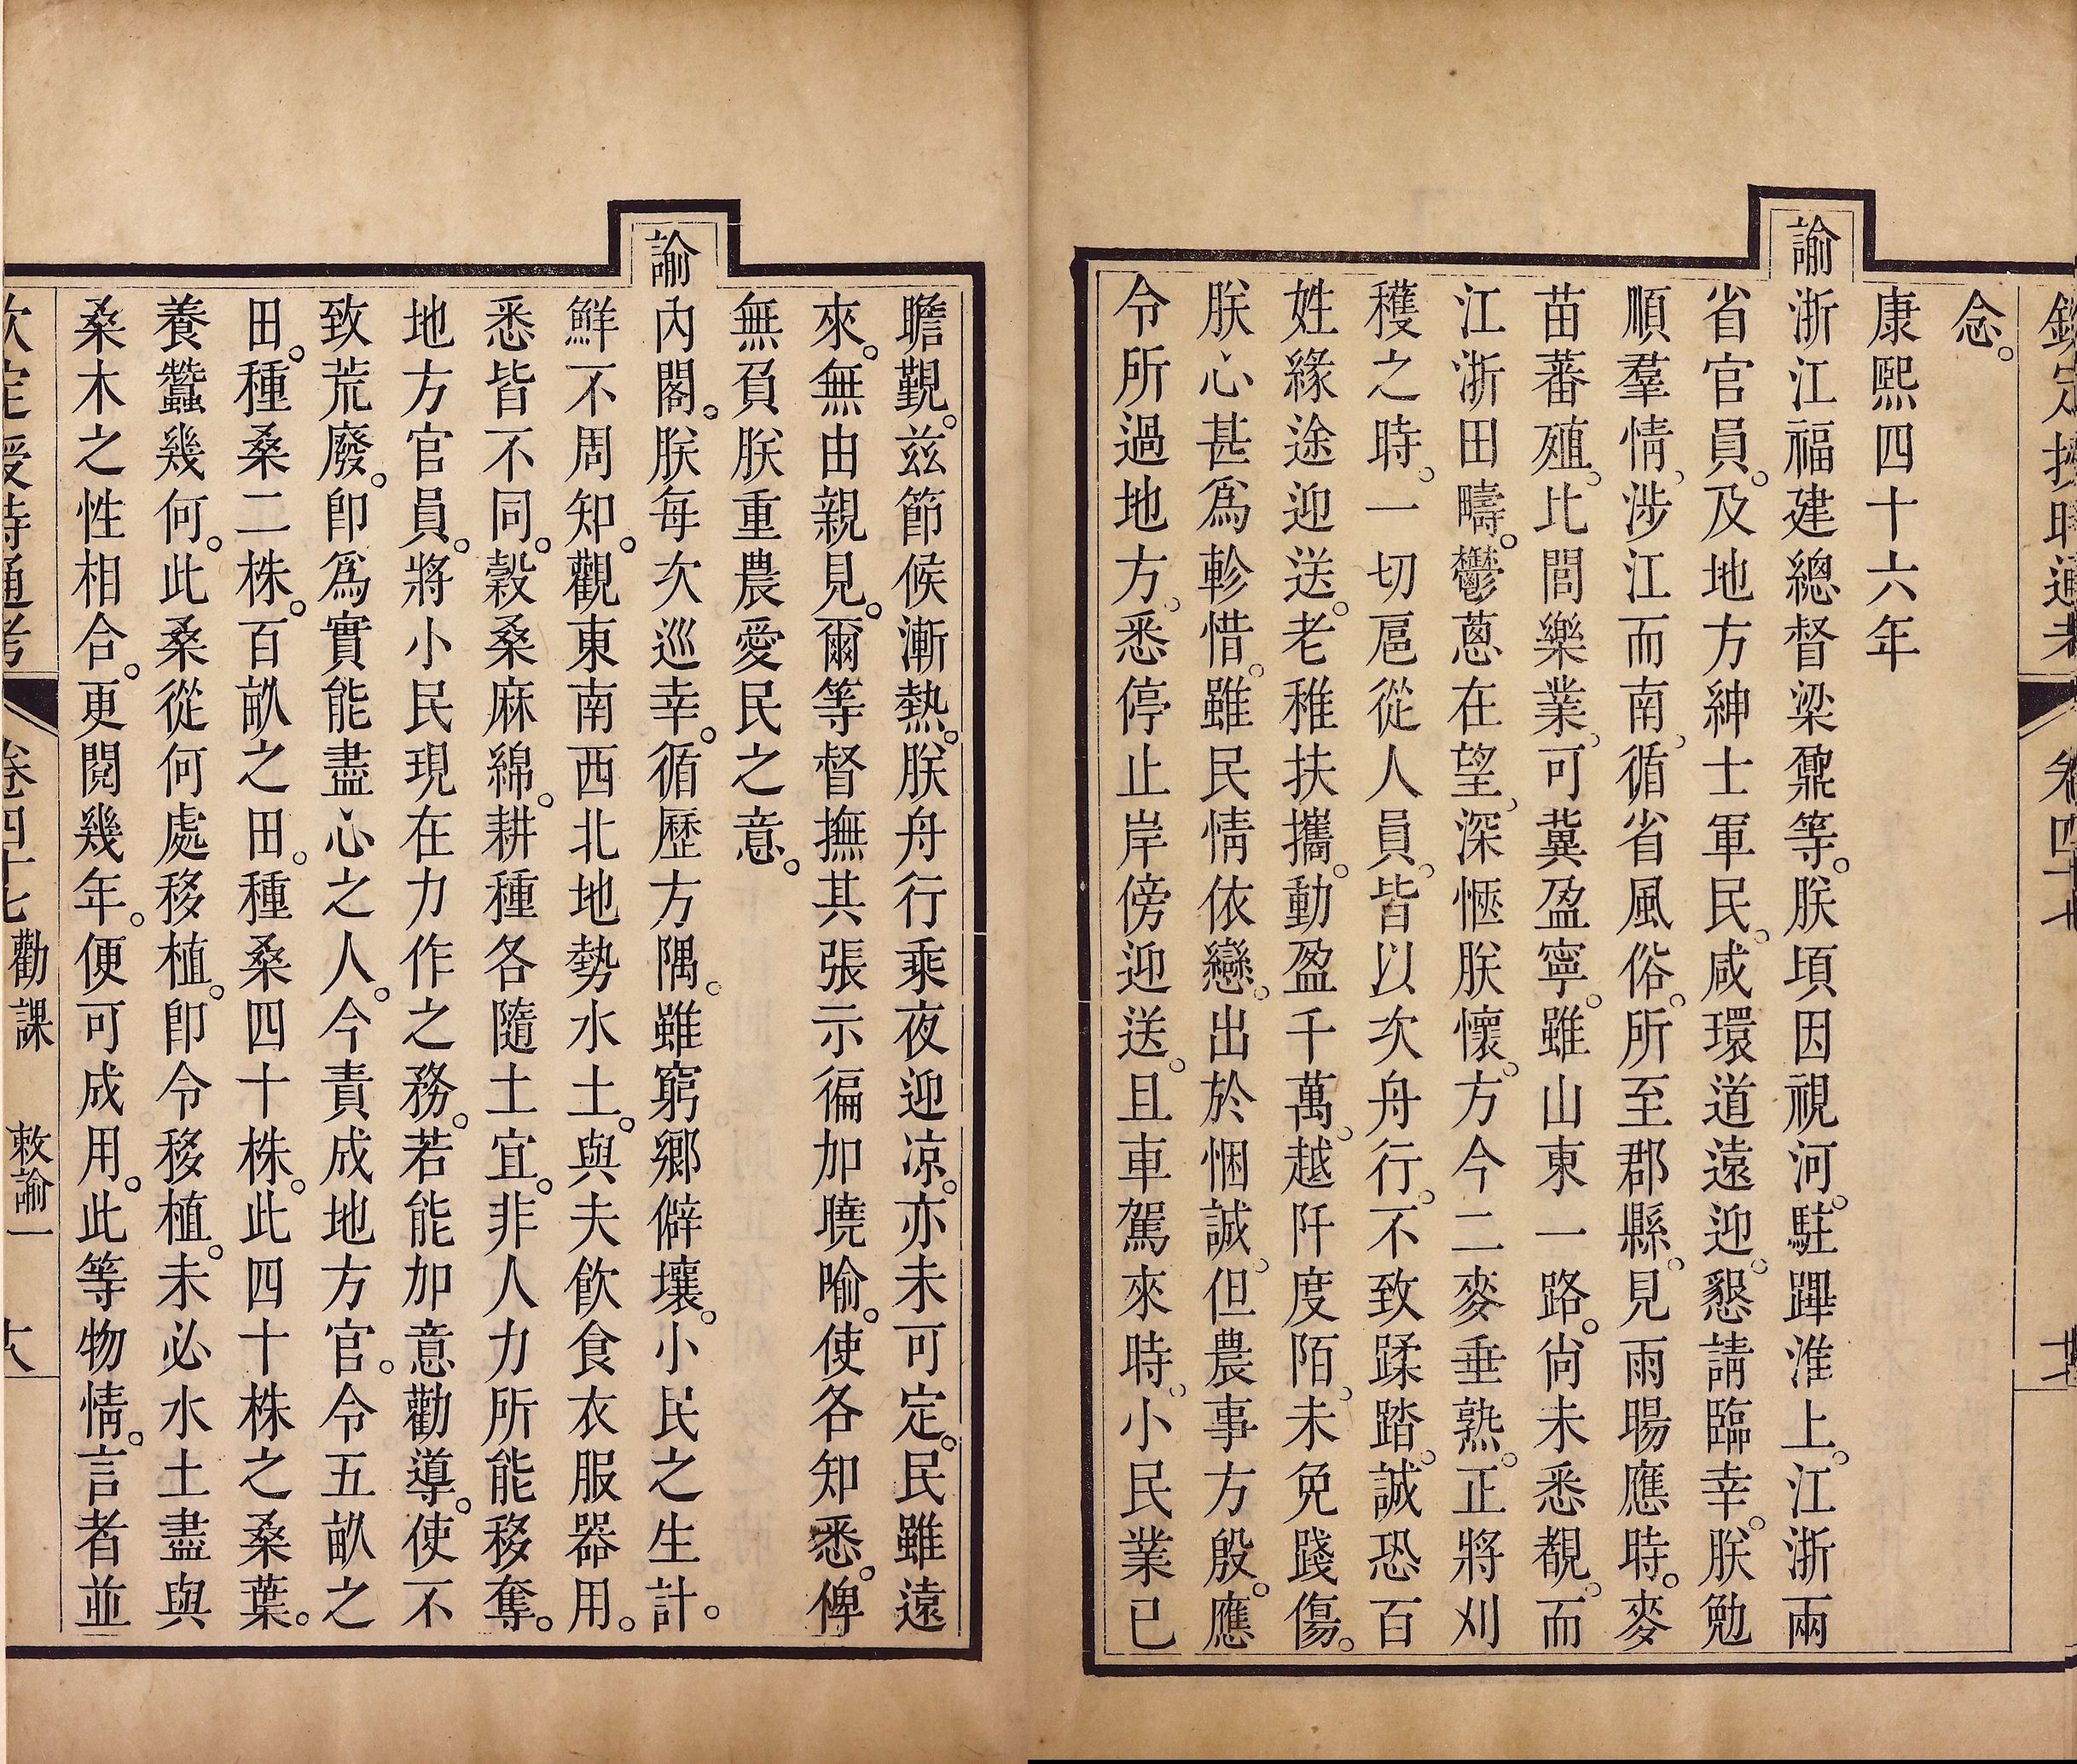 欽定授時通考 卷四十七
念。
康熙四十六年
諭浙江福建總督梁鼐等。朕頃因視河。駐蹕淮上。江浙兩
省官員。及地方紳士軍民。咸環道遠迎。懇請臨幸。朕勉
順羣情。涉江而南。循省風俗。所至郡縣。見雨暘應時。麥
苗蕃殖。比閭樂業。可冀盈寧。雖山東一路。尙未悉覩。而
江浙田疇。鬱蔥在望。深愜朕懷。方今二麥垂熟。正將刈
穫之時。一切扈從人員。皆以次舟行。不致蹂踏。誠恐百
姓緣途迎送。老稚扶攜。動盈千萬。越阡度陌。未免踐傷。
朕心甚爲軫惜。雖民情依戀。出於悃誠。但農事方殷。應
令所過地方。悉停止岸傍迎送。且車駕來時。小民業已
瞻覲。茲節候漸熱。朕舟行乘夜迎凉。亦未可定。民雖遠
來。無由親見。爾等督撫其張示徧加曉喻。使各知悉。俾
無負朕重農愛民之意。
諭內閣。朕每次巡幸。循歷方隅。雖窮鄉僻壤。小民之生計。
鮮不周知。觀東南西北地勢水土。與夫飮食衣服器用。
悉皆不同。穀桑麻綿。耕種各隨土宜。非人力所能移奪。
地方官員。將小民現在力作之務。若能加意勸導。使不
致荒廢。卽爲實能盡心之人。今責成地方官。令五畝之
田。種桑二株。百畝之田。種桑四十株。此四十株之桑葉。
養蠶幾何。此桑從何處移植。卽令移植。未必水土盡與
桑木之性相合。更閱幾年。便可成用。此等物情。言者並
欽定授時通考 卷四十七 勸課 敕諭一 大